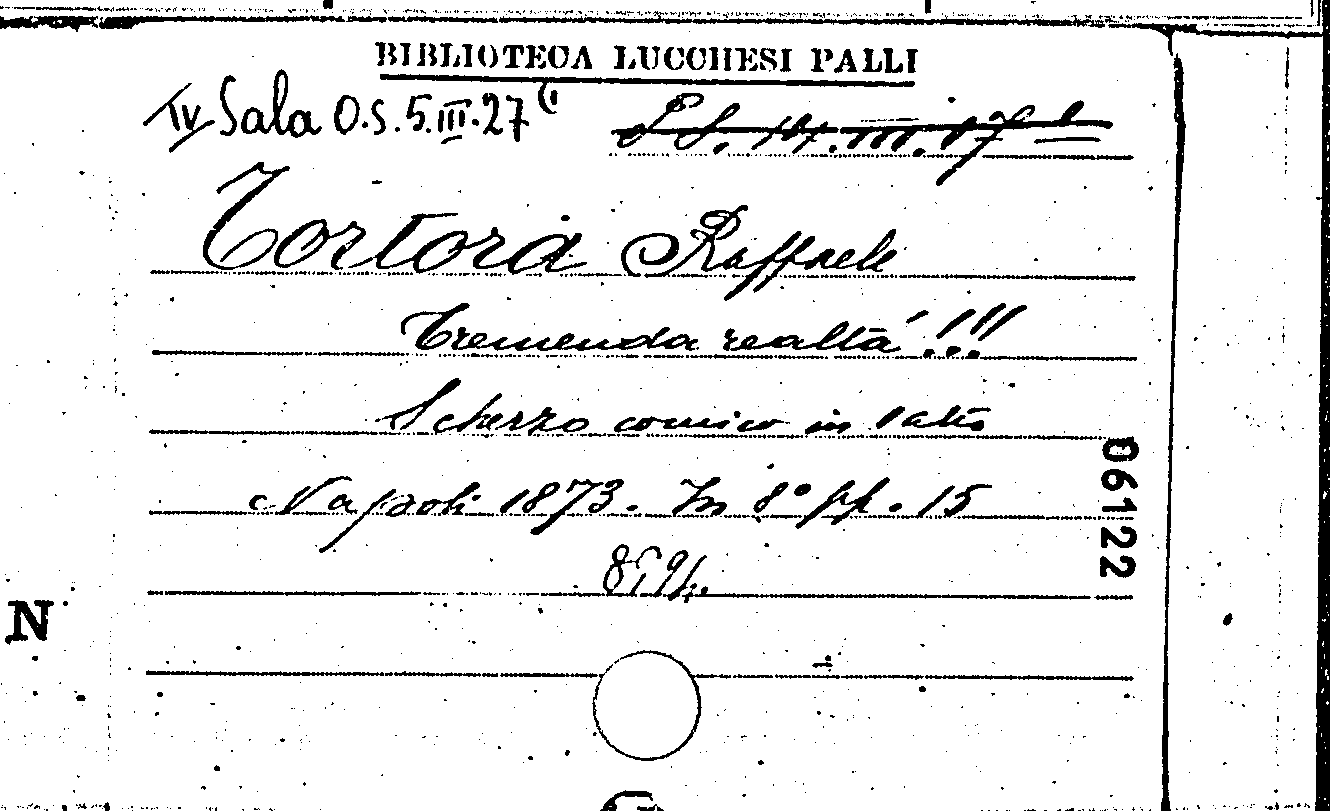 BIBLIOTECA LUCCHESI PALLI
IV Sala O.S. 5.III.27(1
Tortora Raffaele
Tremenda realtá!!!
Scherzo comico in 1 atto
Napoli 1873. In 8° pp. 15
06122
N